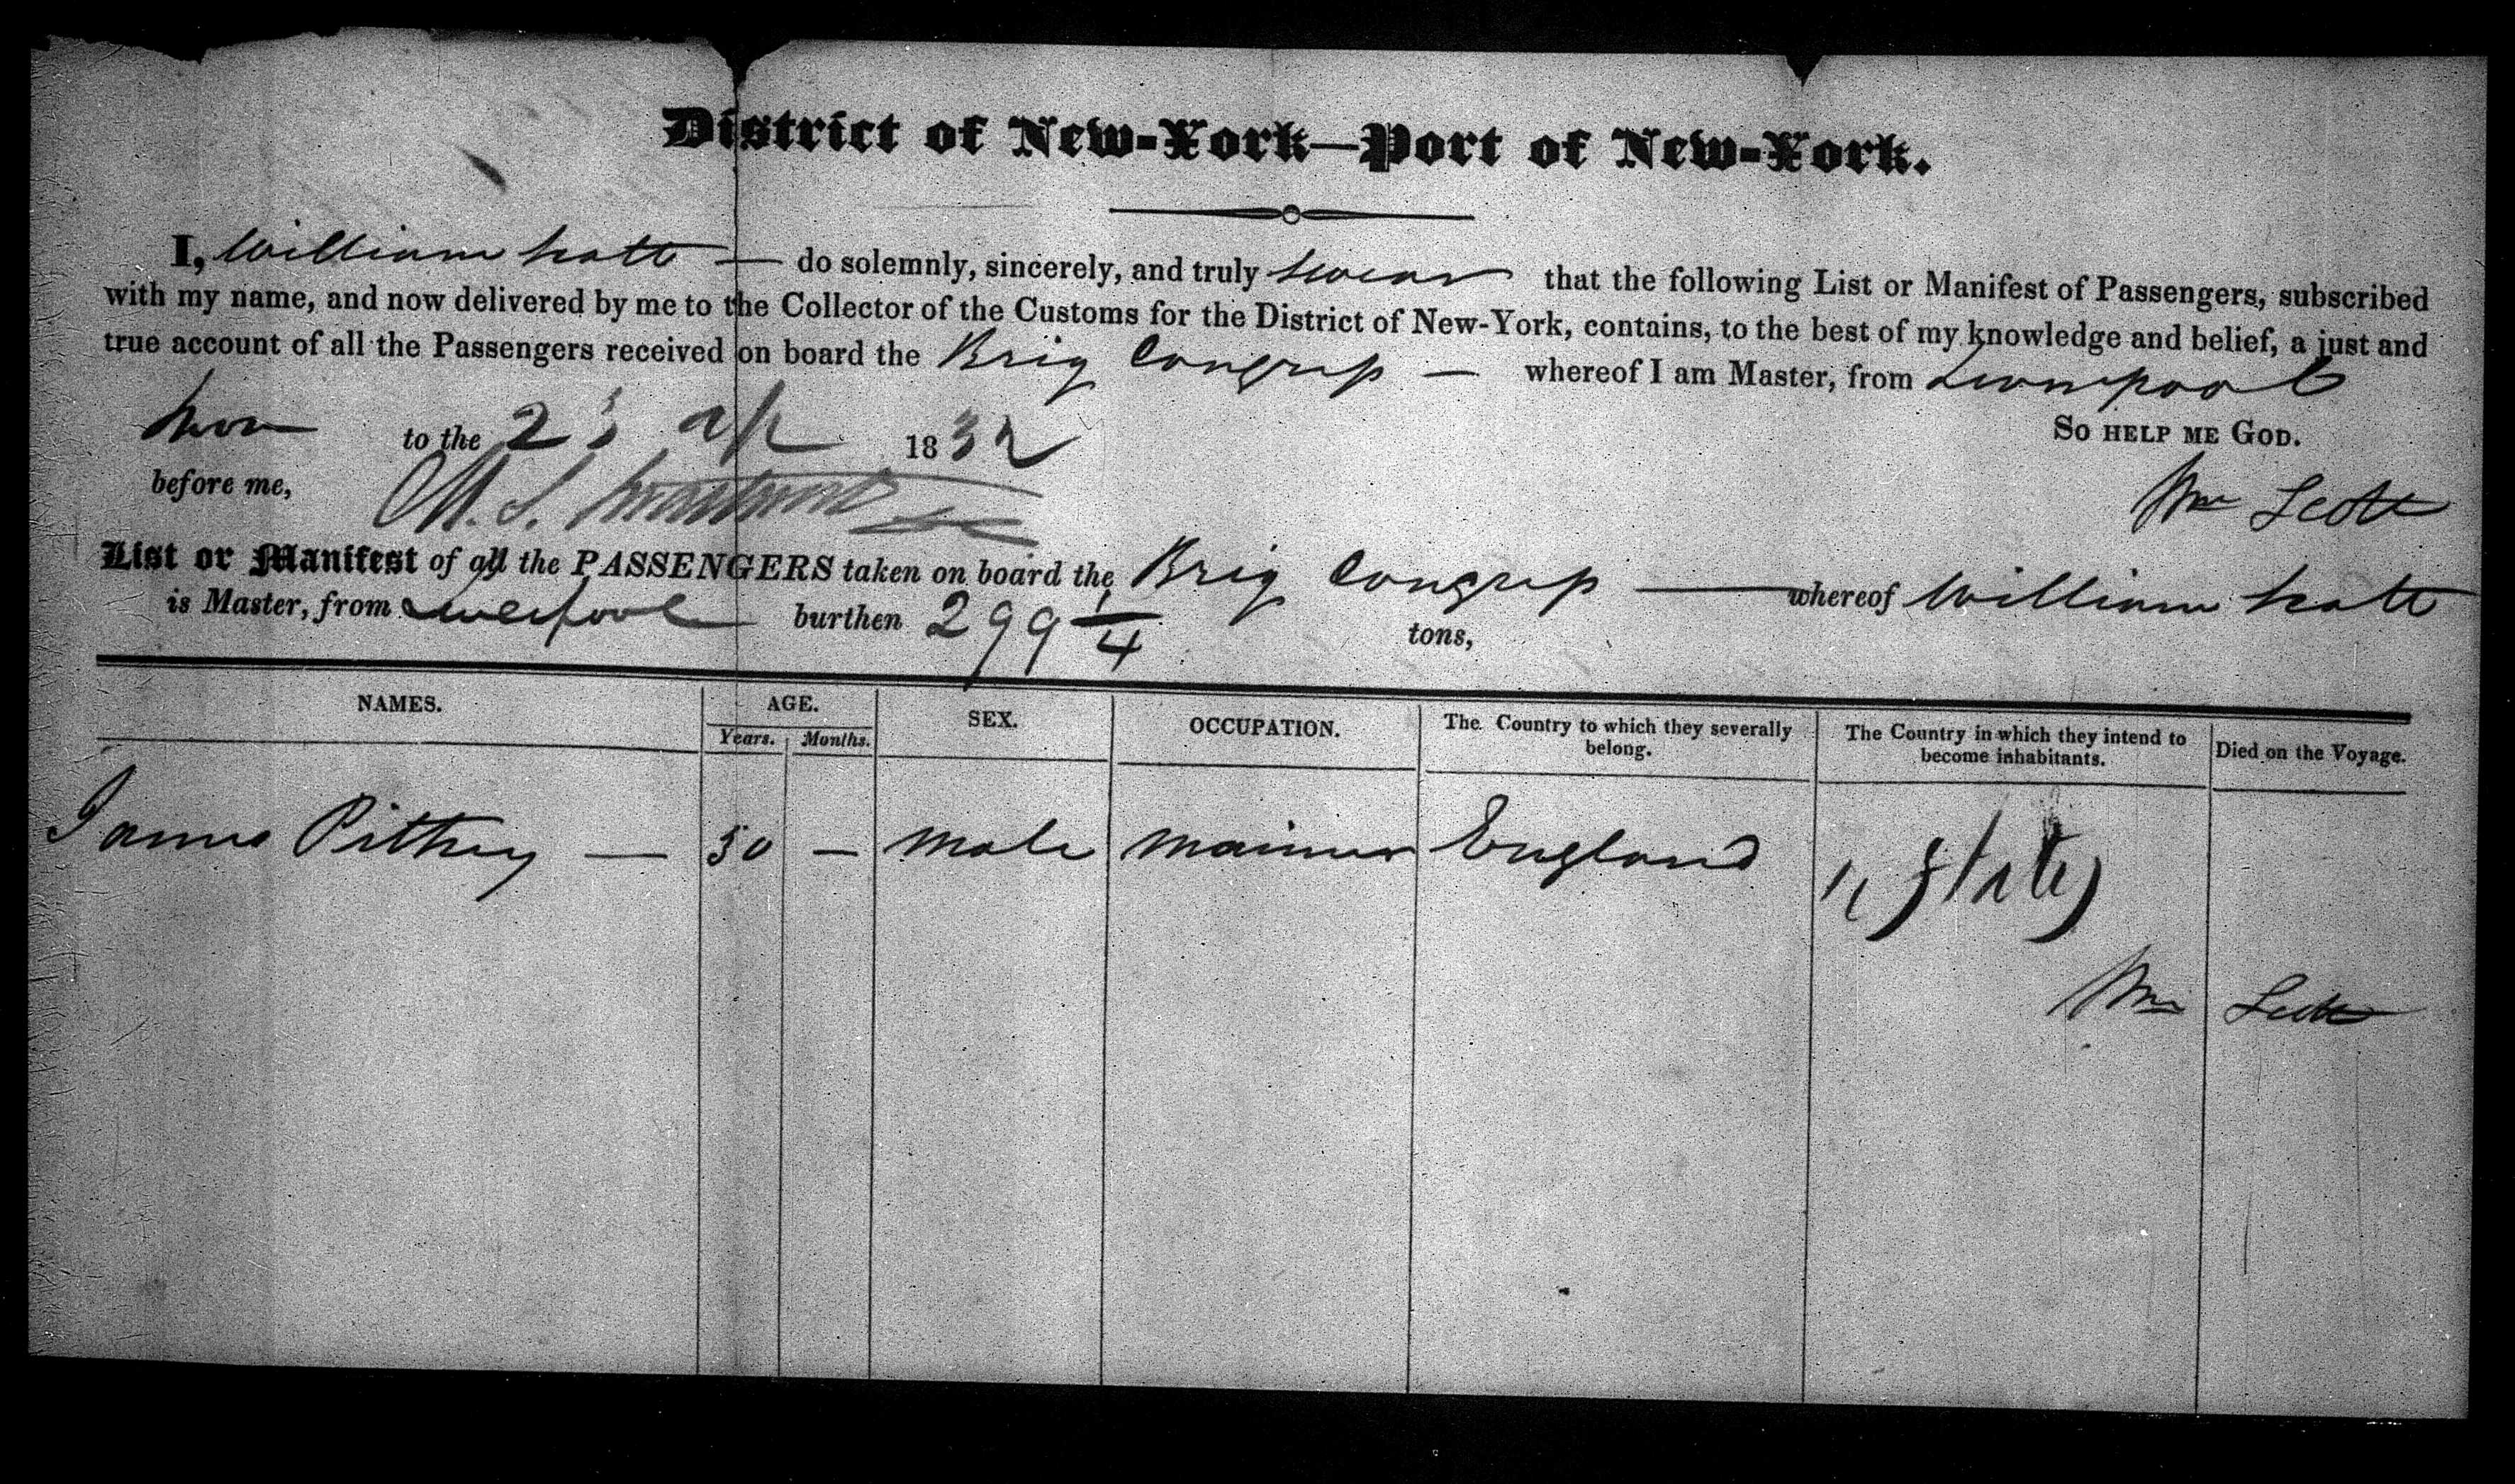 District of New-York—Port of New-York.
I, William Scott — do solemnly, sincerely, and truly swear that the following List or Manifest of Passengers, subscribed
with my name, and now delivered by me to the Collector of the Customs for the District of New-York, contains, to the best of my knowledge and belief, a just and
true account of all the Passengers received on board the Brig Congress — whereof I am Master, from Liverpool
Sworn to the 23 ap 1832 So help me God.
before me, Wm Scott
List or Manifest of all the PASSENGERS taken on board the Brig Congress — whereof William Scott
is Master, from Liverpool burthen 299 1/4 tons,
NAMES. AGE. SEX. OCCUPATION. The Country to which they severally belong. The Country in which they intend to become inhabitants. Died on the Voyage.
Years. Months.
James Pithey — 50 — male mariner England U States
Wm Scott